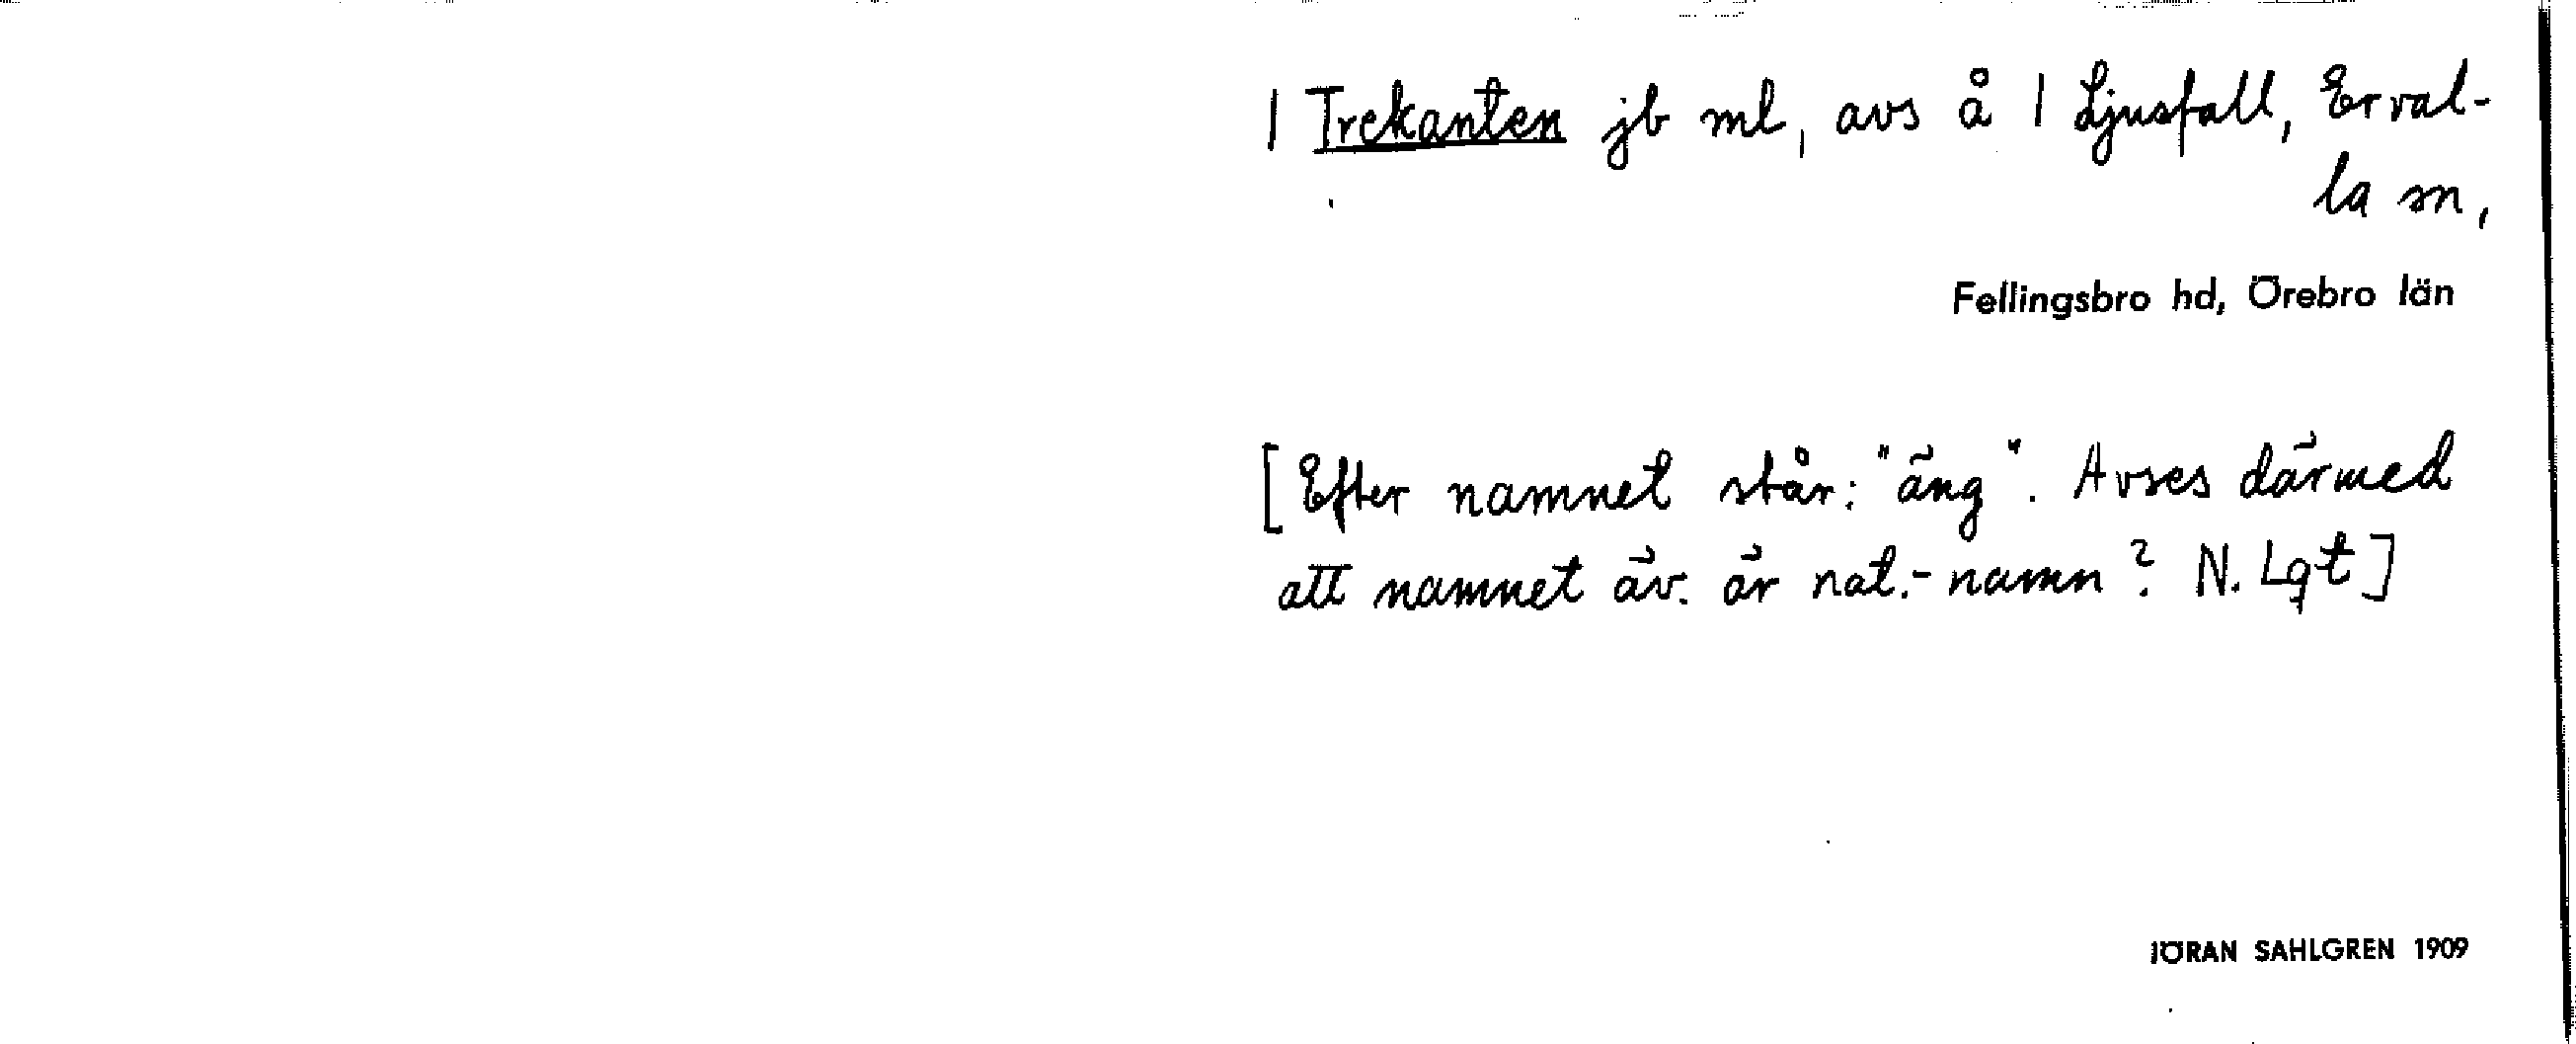 | Trekanten jb ml, avs å | Ljusfall, Erval-
la sn,
Fellingsbro hd, Örebro län
[Efter namnet står: "äng". Avses därmed
att namnet äv. är nat.-namn? N. Lqt]
JÖRAN SAHLGREN 1909